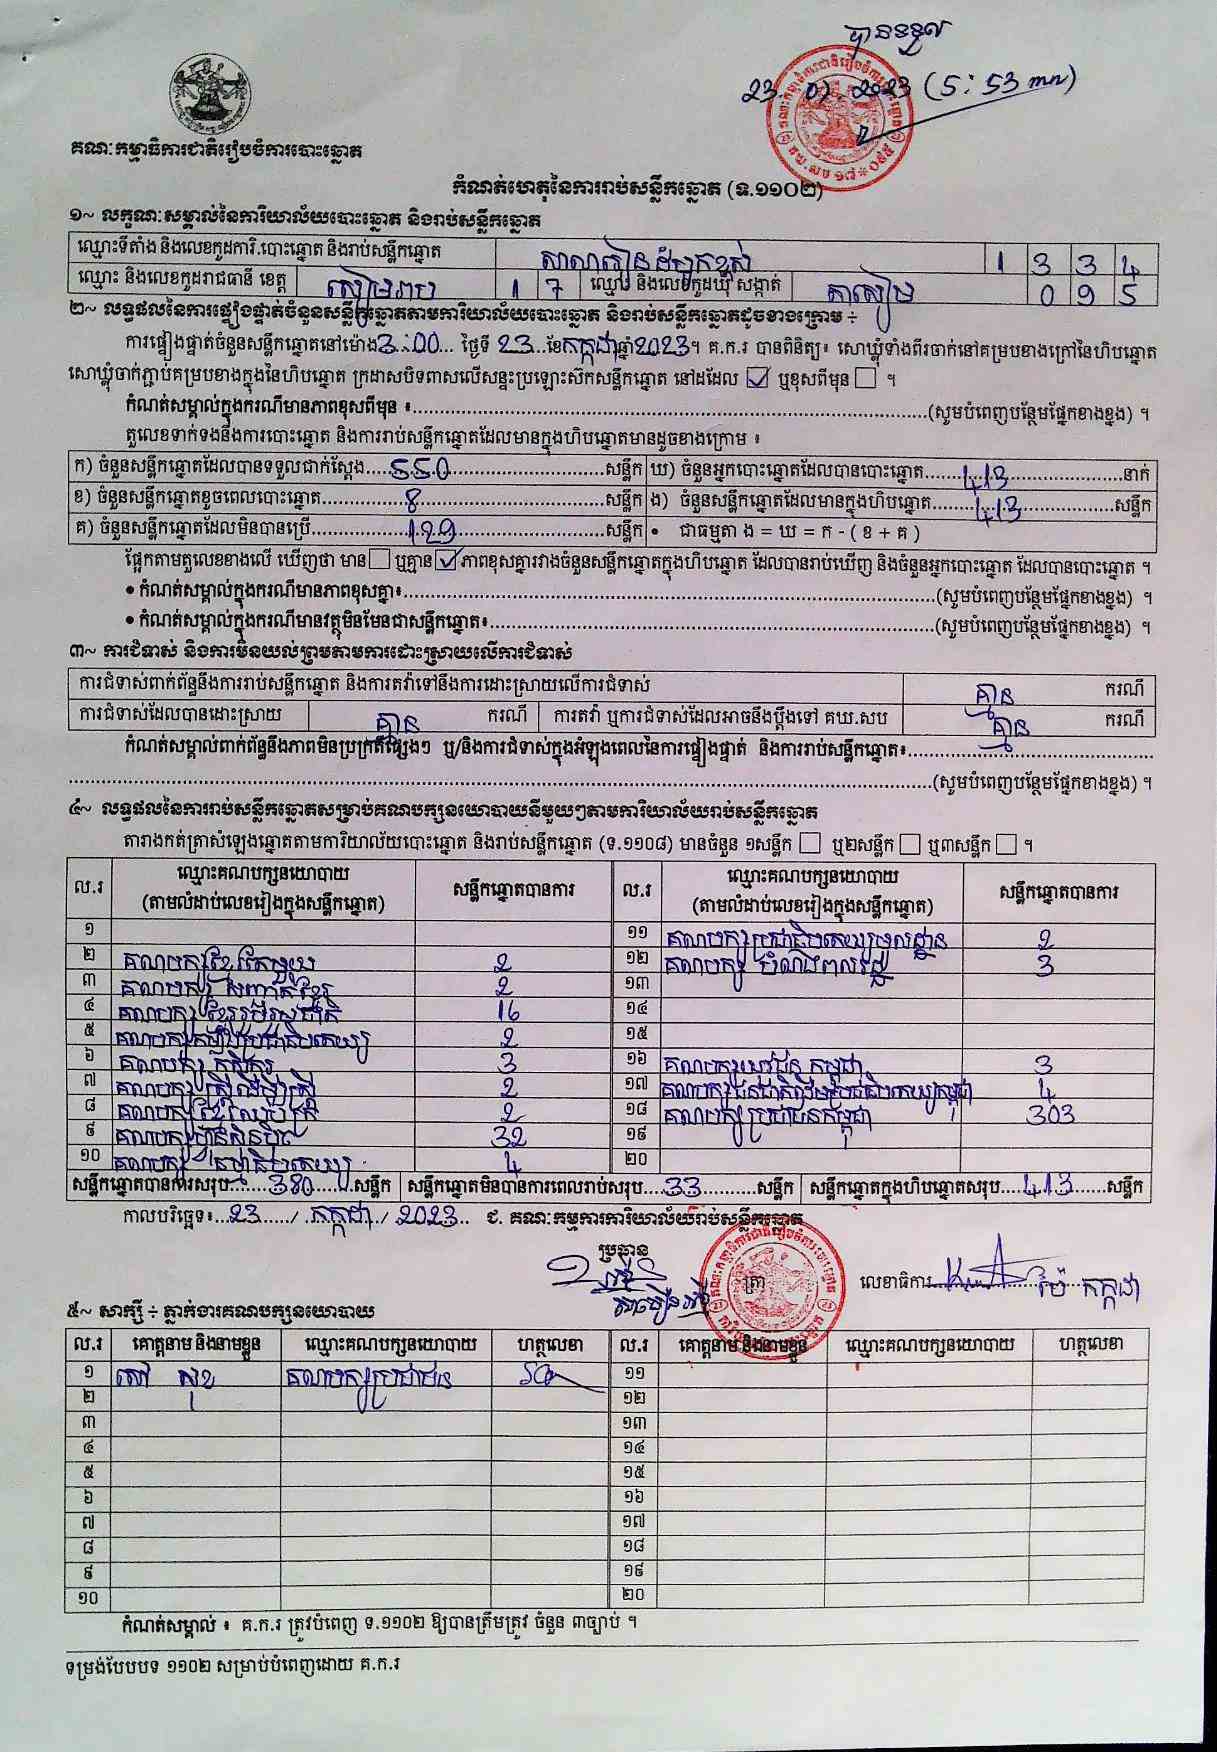 បានទទួល
23. 07. 2023 (5:53 mn)
គណៈកម្មាធិការជាតិរៀបចំការបោះឆ្នោត
កំណត់ហេតុនៃការរាប់សន្លឹកឆ្នោត (ទ.១១០២)
១~ លក្ខណៈសម្គាល់នៃការិយាល័យបោះឆ្នោត និងរាប់សន្លឹកឆ្នោត
ឈ្មោះទីតាំង និងលេខកូដការិ.បោះឆ្នោត និងរាប់សន្លឹកឆ្នោត សាលារៀន 1 3 3 4
ឈ្មោះ និងលេខកូដរាជធានី ខេត្ត សៀមរាប 1 7 ឈ្មោះ និងលេខកូដឃុំ សង្កាត់ តាសៀម 0 9 5
២~ លទ្ធផលនៃការផ្ទៀងផ្ទាត់ចំនួនសន្លឹកឆ្នោតតាមការិយាល័យបោះឆ្នោត និងរាប់សន្លឹកឆ្នោតដូចខាងក្រោម ÷
ការផ្ទៀងផ្ទាត់ចំនួនសន្លឹកឆ្នោតនៅម៉ោង3:00... ថ្ងៃទី 23...ខែកក្កដាឆ្នាំ2023។ គ.ក.រ បានពិនិត្យ៖ សោឃ្លុំទាំងពីរចាក់នៅគម្របខាងក្រៅនៃហិបឆ្នោត
សោឃ្លុំចាក់ភ្ជាប់គម្របខាងក្នុងនៃហិបឆ្នោត ក្រដាសបិទពាសលើសន្ទះប្រឡោះស៊កសន្លឹកឆ្នោត នៅដដែល ☑ ឬខុសពីមុន ☐ ។
កំណត់សម្គាល់ក្នុងករណីមានភាពខុសពីមុន ៖....................(សូមបំពេញបន្ថែមផ្នែកខាងខ្នង) ។
តួលេខទាក់ទងនឹងការបោះឆ្នោត និងការរាប់សន្លឹកឆ្នោតដែលមានក្នុងហិបឆ្នោតមានដូចខាងក្រោម ៖
ក) ចំនួនសន្លឹកឆ្នោតដែលបានទទួលជាក់ស្តែង....550....សន្លឹក ឃ) ចំនួនអ្នកបោះឆ្នោតដែលបានបោះឆ្នោត....413....នាក់
ខ) ចំនួនសន្លឹកឆ្នោតខូចពេលបោះឆ្នោត....8....សន្លឹក ង) ចំនួនសន្លឹកឆ្នោតដែលមានក្នុងហិបឆ្នោត....413....សន្លឹក
គ) ចំនួនសន្លឹកឆ្នោតដែលមិនបានប្រើ....129....សន្លឹក • ជាធម្មតា ង = ឃ = ក - ( ខ + គ )
ផ្អែកតាមតួលេខខាងលើ ឃើញថា មាន☐ ឬគ្មាន☑ ភាពខុសគ្នារវាងចំនួនសន្លឹកឆ្នោតក្នុងហិបឆ្នោត ដែលបានរាប់ឃើញ និងចំនួនអ្នកបោះឆ្នោត ដែលបានបោះឆ្នោត ។
• កំណត់សម្គាល់ក្នុងករណីមានភាពខុសគ្នា៖....................(សូមបំពេញបន្ថែមផ្នែកខាងខ្នង) ។
• កំណត់សម្គាល់ក្នុងករណីមានវត្ថុមិនមែនជាសន្លឹកឆ្នោត៖....................(សូមបំពេញបន្ថែមផ្នែកខាងខ្នង) ។
៣~ ការជំទាស់ និងការមិនយល់ព្រមតាមការដោះស្រាយលើការជំទាស់
ការជំទាស់ពាក់ព័ន្ធនឹងការរាប់សន្លឹកឆ្នោត និងការតវ៉ាទៅនឹងការដោះស្រាយលើការជំទាស់ គ្មាន ករណី
ការជំទាស់ដែលបានដោះស្រាយ គ្មាន ករណី ការតវ៉ា ឬការជំទាស់ដែលអាចនឹងប្តឹងទៅ គឃ.សប គ្មាន ករណី
កំណត់សម្គាល់ពាក់ព័ន្ធនឹងភាពមិនប្រក្រតីផ្សេងៗ ឬ/និងការជំទាស់ក្នុងអំឡុងពេលនៃការផ្ទៀងផ្ទាត់ និងការរាប់សន្លឹកឆ្នោត៖....................
....................(សូមបំពេញបន្ថែមផ្នែកខាងខ្នង) ។
៤~ លទ្ធផលនៃការរាប់សន្លឹកឆ្នោតសម្រាប់គណបក្សនយោបាយនីមួយៗតាមការិយាល័យរាប់សន្លឹកឆ្នោត
តារាងកត់ត្រាសំឡេងឆ្នោតតាមការិយាល័យបោះឆ្នោត និងរាប់សន្លឹកឆ្នោត (ទ.១១០៨) មានចំនួន ១សន្លឹក ☐ ឬ២សន្លឹក ☐ ឬ៣សន្លឹក ☐ ។
ល.រ ឈ្មោះគណបក្សនយោបាយ (តាមលំដាប់លេខរៀងក្នុងសន្លឹកឆ្នោត) សន្លឹកឆ្នោតបានការ ល.រ ឈ្មោះគណបក្សនយោបាយ (តាមលំដាប់លេខរៀងក្នុងសន្លឹកឆ្នោត) សន្លឹកឆ្នោតបានការ
១ ១១ គណបក្សប្រជាធិបតេយ្យមូលដ្ឋាន 2
២ គណបក្សខ្មែរតែមួយ 2 ១២ គណបក្ស បំណងពលរដ្ឋ 3
៣ គណបក្ស សញ្ជាតិខ្មែរ 2 ១៣
៤ គណបក្សខ្មែររួបរួមជាតិ 16 ១៤
៥ គណបក្សកម្លាំងប្រជាធិបតេយ្យ 2 ១៥
៦ គណបក្ស កសិករ 3 ១៦ គណបក្សយុវជន កម្ពុជា 3
៧ គណបក្សស្រ្តីដើម្បីស្រ្តី 2 ១៧ គណបក្សជនជាតិដើមប្រជាធិបតេយ្យកម្ពុជា 4
៨ គណបក្សខ្មែរឈប់ក្រ 2 ១៨ គណបក្សប្រជាជនកម្ពុជា 303
៩ គណបក្សហ្វ៊ុនស៊ិនប៉ិច 32 ១៩
១០ គណបក្ស ធម្មាធិបតេយ្យ 4 ២០
សន្លឹកឆ្នោតបានការសរុប....380....សន្លឹក សន្លឹកឆ្នោតមិនបានការពេលរាប់សរុប....33....សន្លឹក សន្លឹកឆ្នោតក្នុងហិបឆ្នោតសរុប....413....សន្លឹក
កាលបរិច្ឆេទ៖...23...../..កក្កដា../ 2023.. ជ. គណៈកម្មការការិយាល័យរាប់សន្លឹកឆ្នោត
ប្រធាន ត្រា លេខាធិការ.......... ម៉ៃ កក្កដា
៥~ សាក្សី ÷ ភ្នាក់ងារគណបក្សនយោបាយ
ល.រ គោត្តនាម និងនាមខ្លួន ឈ្មោះគណបក្សនយោបាយ ហត្ថលេខា ល.រ គោត្តនាម និងនាមខ្លួន ឈ្មោះគណបក្សនយោបាយ ហត្ថលេខា
១ សៅ សុខ គណបក្សប្រជាជន ១១
២ ១២
៣ ១៣
៤ ១៤
៥ ១៥
៦ ១៦
៧ ១៧
៨ ១៨
៩ ១៩
១០ ២០
កំណត់សម្គាល់ ៖ គ.ក.រ ត្រូវបំពេញ ទ.១១០២ ឱ្យបានត្រឹមត្រូវ ចំនួន ៣ច្បាប់ ។
ទម្រង់បែបបទ ១១០២ សម្រាប់បំពេញដោយ គ.ក.រ